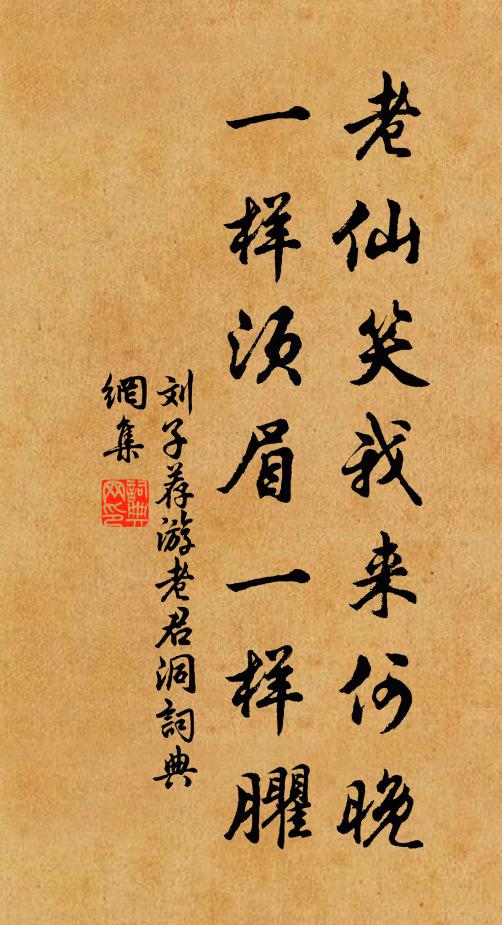 老仙笑我来何晚
一样须眉一样臞
刘子荐游老君洞詞典
網集
詞典網印